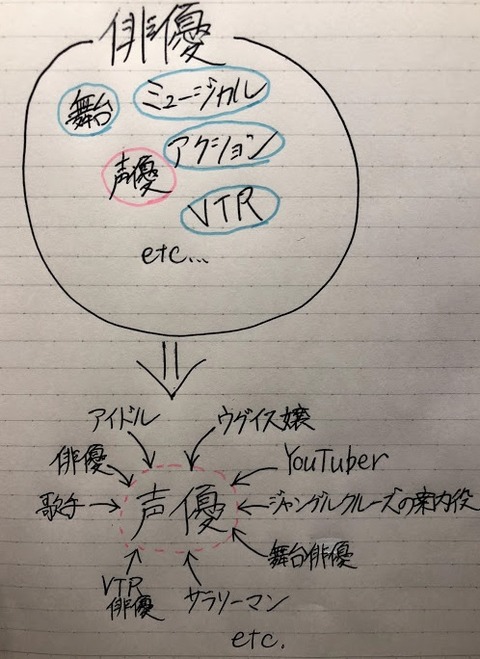 俳優
舞台
ミュージカル
アクション
声優
VTR
etc...
アイドル
ウグイス嬢
俳優
YouTuber
歌手
声優
ジャングルクルーズの案内役
舞台俳優
VTR
俳優
サラリーマン
etc.